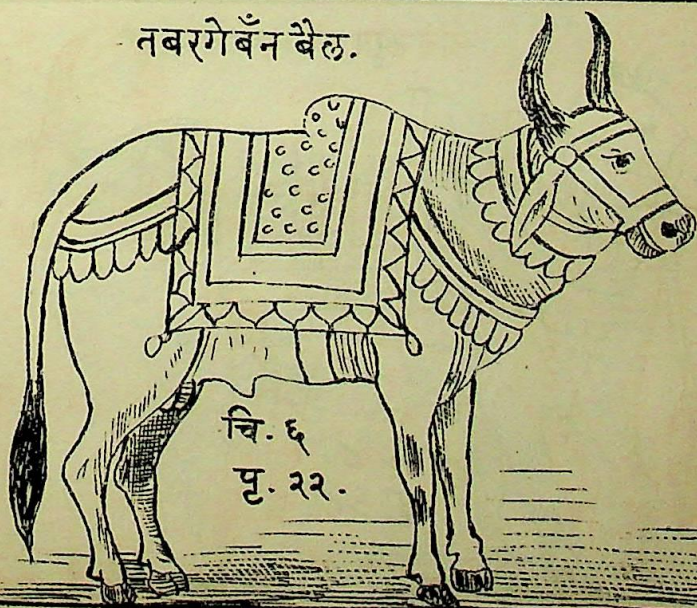 तबरगेबँन बैल.
चि. ६
पृ. २२.